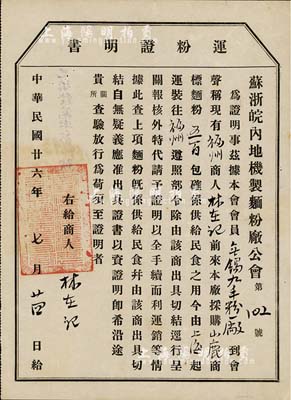 運粉證明書
蘇浙皖內地機製麵粉廠公會 第102號
為證明事茲據本會會員無錫九丰粉廠到會
聲稱現有福州商人林在記前來本廠採購山鹿商
標麵粉五百包確係供給民食之用今由上海起
運裝往福州遵照部令除由該商出具切結逕行呈
關報核外特代請予證明以全手續而利運銷等情
據此查上項麵粉既係供給民食并由該商出具切
結自無疑義應准出具證書以資證明即希沿途
貴關所查驗放行為荷須至證明者
右給商人 林在記
中華民國廿六年七月 日給